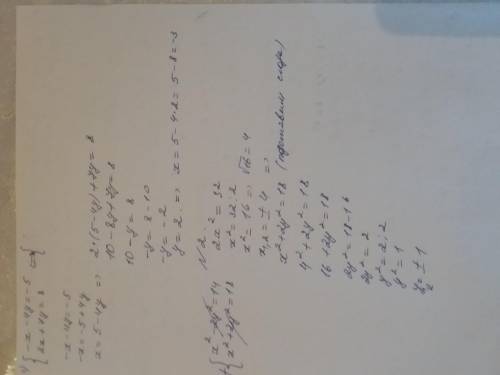 1) { -x-4y=5 ⇒ {
2x+7y=8
-x-4y=5
-x=-5+4y
x=5-4y ⇒ 2·(5-4y)+7y=8
10-8y+7y=8
10-y=8
-y=8-10
-y=-2
y=2 ⇒ x=5-4·2=5-8=-3
№2.
+{ x²-2y²=14
x²+2y²=18
2x²=32
x²=32:2
x²=16 ⇒ √16=4
x₁,₂=±4 ⇒
x²+2y²=18 (подставим сюда)
4²+2y²=18
16+2y²=18
2y²=18-16
2y²=2
y²=2:2
y²=1
y=±1